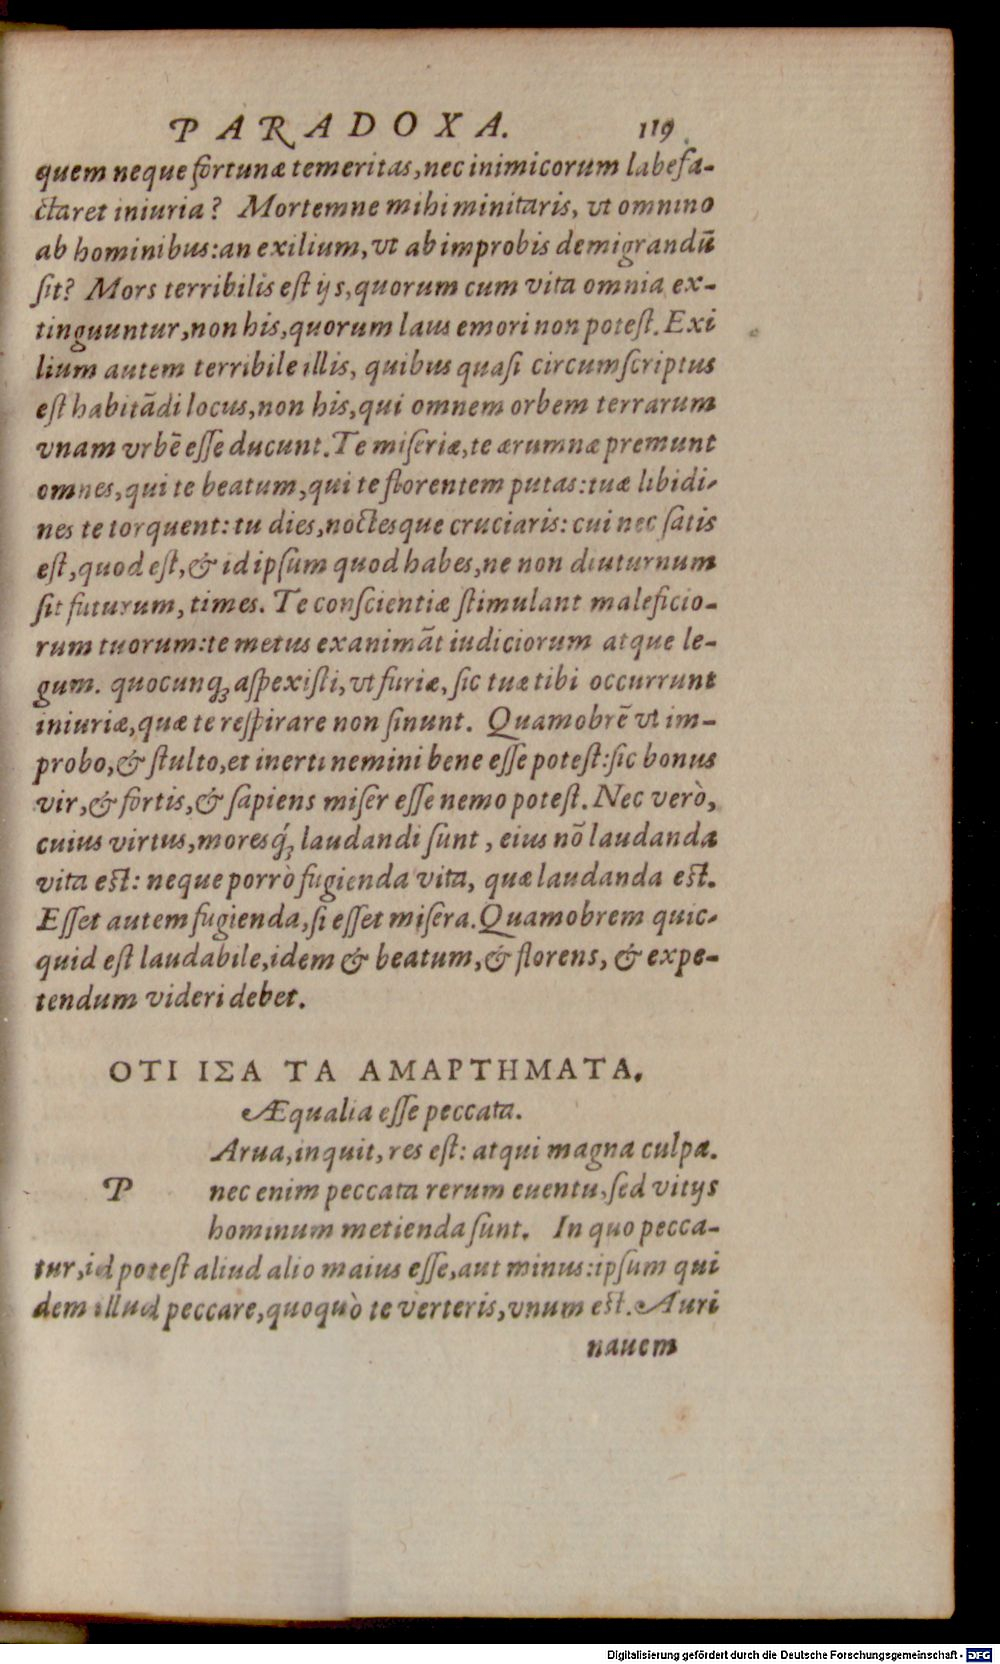 PARADOXA. 119
quem neque fortunæ temeritas, nec inimicorum labefa-
ctaret iniuria? Mortemne mihi minitaris, vt omnino
ab hominibus: an exilium, vt ab improbis demigrandũ
sit? Mors terribilis est ijs, quorum cum vita omnia ex-
tinguuntur, non his, quorum laus emori non potest. Exi
lium autem terribile illis, quibus quasi circumscriptus
est habitãdi locus, non his, qui omnem orbem terrarum
vnam vrbẽ esse ducunt. Te miseriæ, te ærumnæ premunt
omnes, qui te beatum, qui te florentem putas: tuæ libidi-
nes te torquent: tu dies, noctesque cruciaris: cui nec satis
est, quod est, & id ipsum quod habes, ne non diuturnum
sit futurum, times. Te conscientiæ stimulant maleficio-
rum tuorum: te metus exanimãt iudiciorum atque le-
gum. quocunq; aspexisti, vt furiæ, sic tuæ tibi occurrunt
iniuriæ, quæ te respirare non sinunt. Quamobrẽ vt im-
probo, & stulto, et inerti nemini bene esse potest: sic bonus
vir, & fortis, & sapiens miser esse nemo potest. Nec verò,
cuius virtus, moresq́; laudandi sunt, eius nõ laudanda
vita est: neque porrò fugienda vita, quæ laudanda est.
Esset autem fugienda, si esset misera. Quamobrem quic-
quid est laudabile, idem & beatum, & florens, & expe-
tendum videri debet.
ΟΤΙ ΙΣΑ ΤΑ ΑΜΑΡΤΗΜΑΤΑ.
Æqualia esse peccata.
P Arua, inquit, res est: atqui magna culpa.
nec enim peccata rerum euentu, sed vitijs
hominum metienda sunt. In quo pecca-
tur, id potest aliud alio maius esse, aut minus: ipsum qui
dem illud peccare, quoquò te verteris, vnum est. Auri
nauem
Digitalisierung gefördert durch die Deutsche Forschungsgemeinschaft - DFG